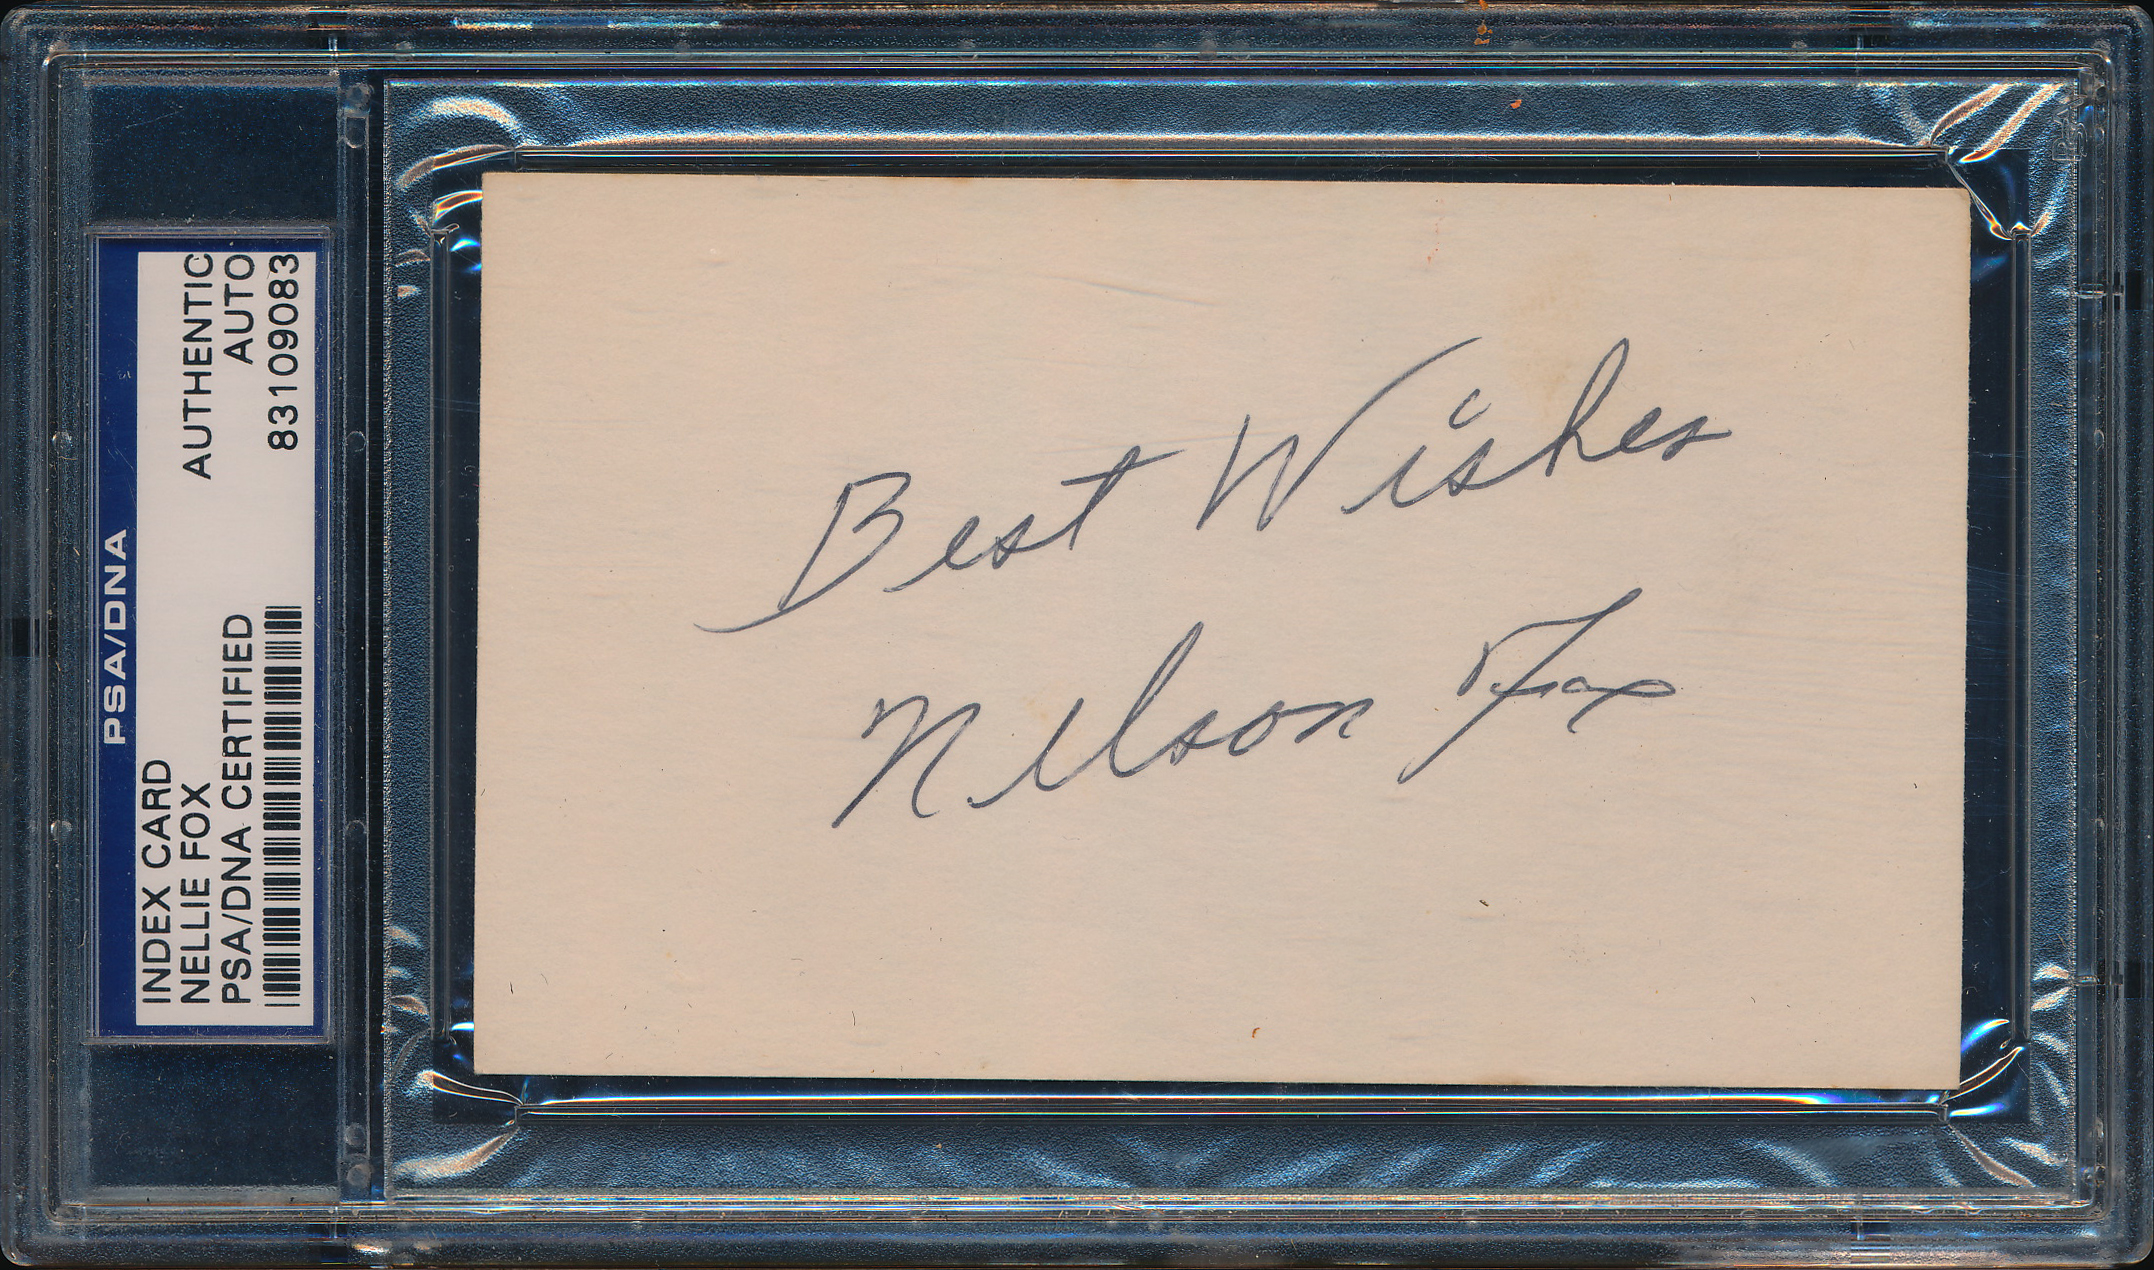 PSA/DNA
INDEX CARD
NELLIE FOX
PSA/DNA CERTIFIED
AUTHENTIC
AUTO
83109083
Best Wishes
Nelson Fox
PSA